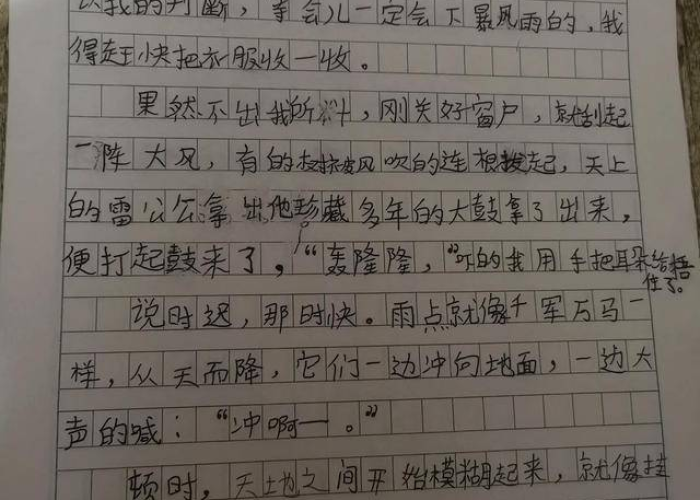 以我的判断，等会儿一定会下暴风雨的，我
得赶快把衣服收一收。
果然不出我所料，刚关好窗户，就刮起
一阵大风，有的树被风吹的连根拔起，天上
的雷公公拿出他珍藏多年的大鼓拿了出来，
便打起鼓来了，“轰隆隆，”吓的我用手把耳朵给捂
住了。
说时迟，那时快。雨点就像千军万马一
样，从天而降，它们一边冲向地面，一边大
声的喊：“冲啊一。”
顿时，天地之间开始模糊起来，就像挂